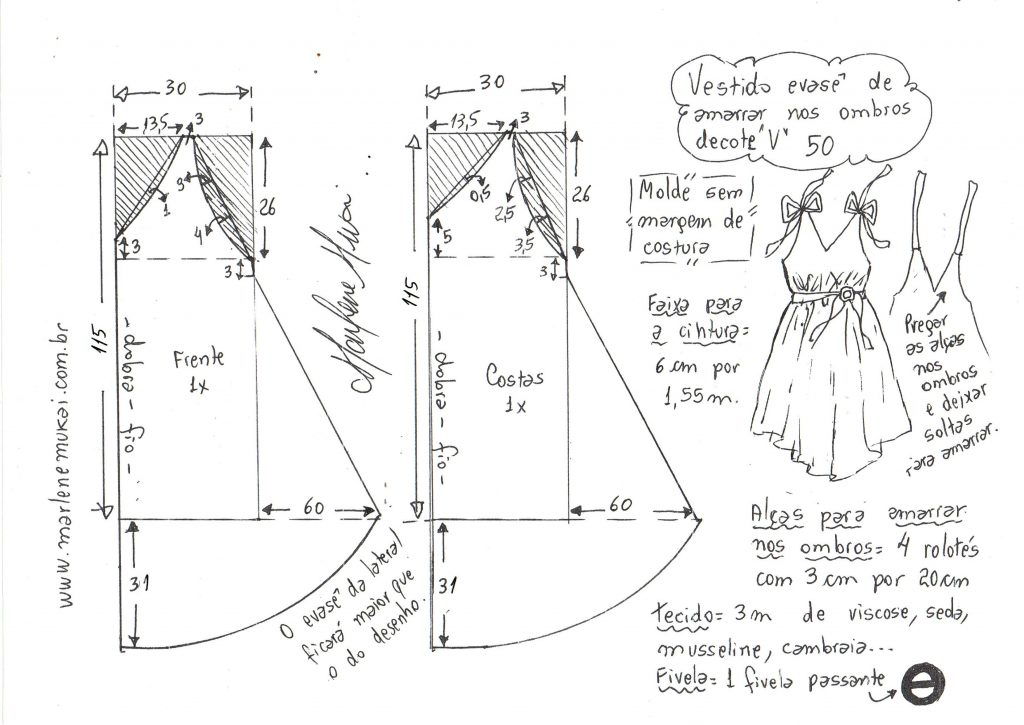 30
13,5
3
3
1
4
26
3
3
115
- dobra - fio -
Frente
1x
60
31
O evasê da lateral
ficará maior que
o do desenho.
www.marlenemukai.com.br
Marlene Mukai
30
13,5
3
0,5
2,5
3,5
26
5
3
115
- dobra - fio -
Costas
1x
60
31
Vestido evasê de
amarrar nos ombros
decote "V" 50
Molde sem
margem de
costura
Faixa para
a cintura=
6 cm por
1,55 m.
Pregar
as alças
nos
ombros
e deixar
soltas
para amarrar.
Alças para amarrar
nos ombros= 4 rolotês
com 3 cm por 20 cm
Tecido= 3 m de viscose, seda,
musseline, cambraia...
Fivela= 1 fivela passante